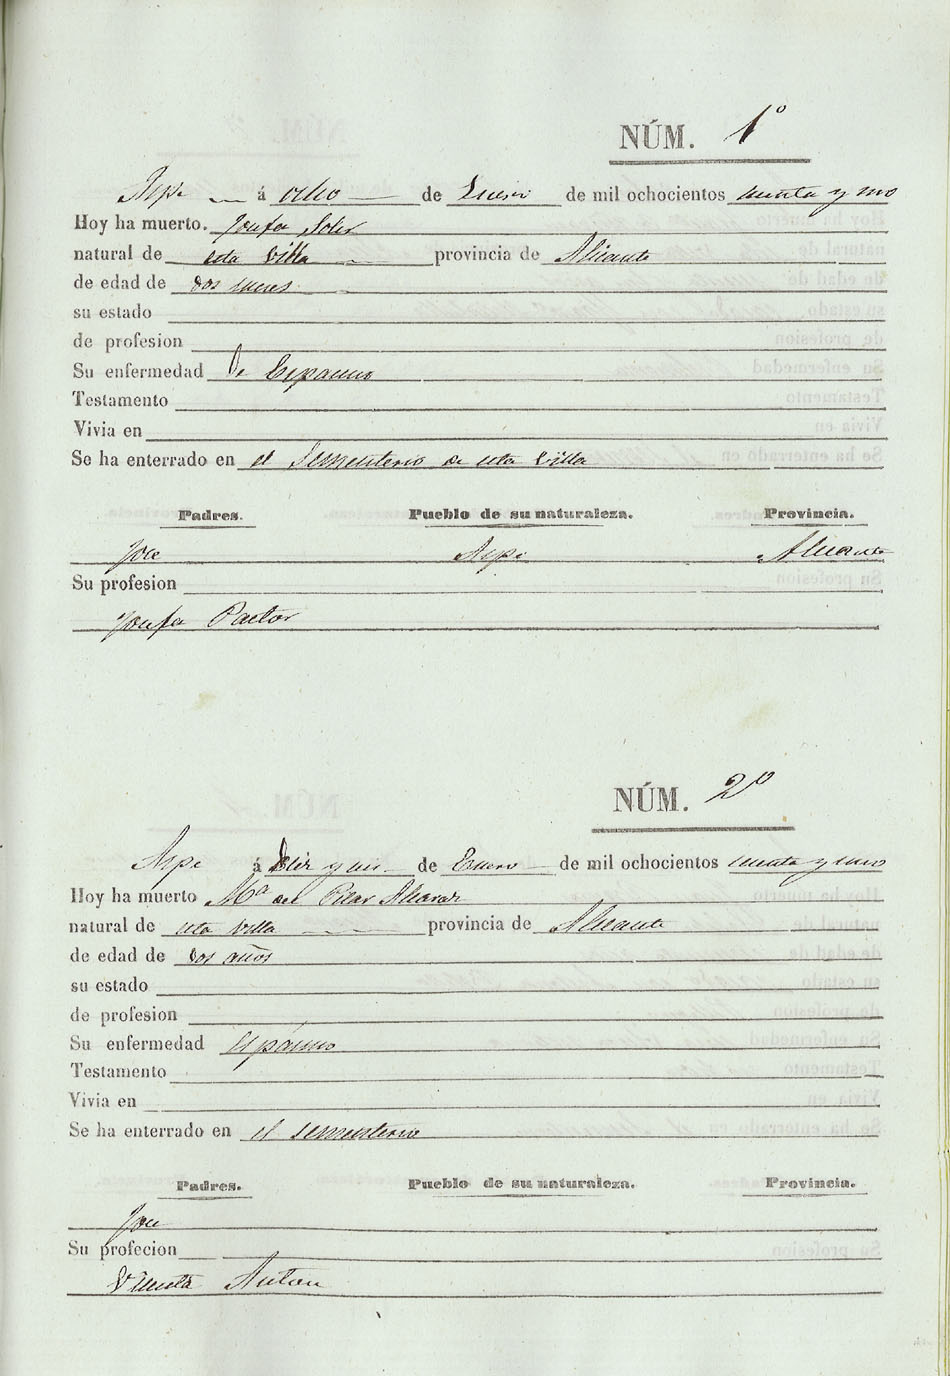 NÚM. 1º
Aspe á ocho de Enero de mil ochocientos
Hoy ha muerto. Josefa Soler
natural de esta Villa provincia de Alicante
de edad de dos meses
su estado
de profesion
Su enfermedad De Espasmo
Testamento
Vivia en
Se ha enterrado en el Sementerio de esta Villa
Padres. Pueblo de su naturaleza. Provincia.
Jose Aspe Alicante
Su profesion
Josefa Pastor
NÚM. 2º
Aspe á Diez y de Enero de mil ochocientos
Hoy ha muerto Mª del Pilar Alcaraz
natural de esta Villa provincia de Alicante
de edad de dos años
su estado
de profesion
Su enfermedad Espasmo
Testamento
Vivia en
Se ha enterrado en el sementerio
Padres. Pueblo de su naturaleza. Provincia.
Jose
Su profecion
Vicenta Anton